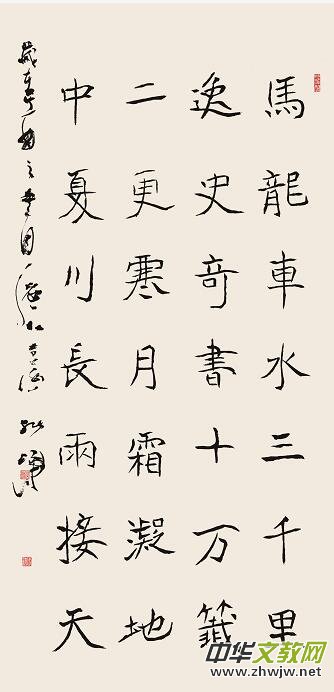 馬龍車水三千里
逸史奇書十万籤
二更寒月霜凝地
中夏川長雨接天
中华文教网
www.zhwjw.net